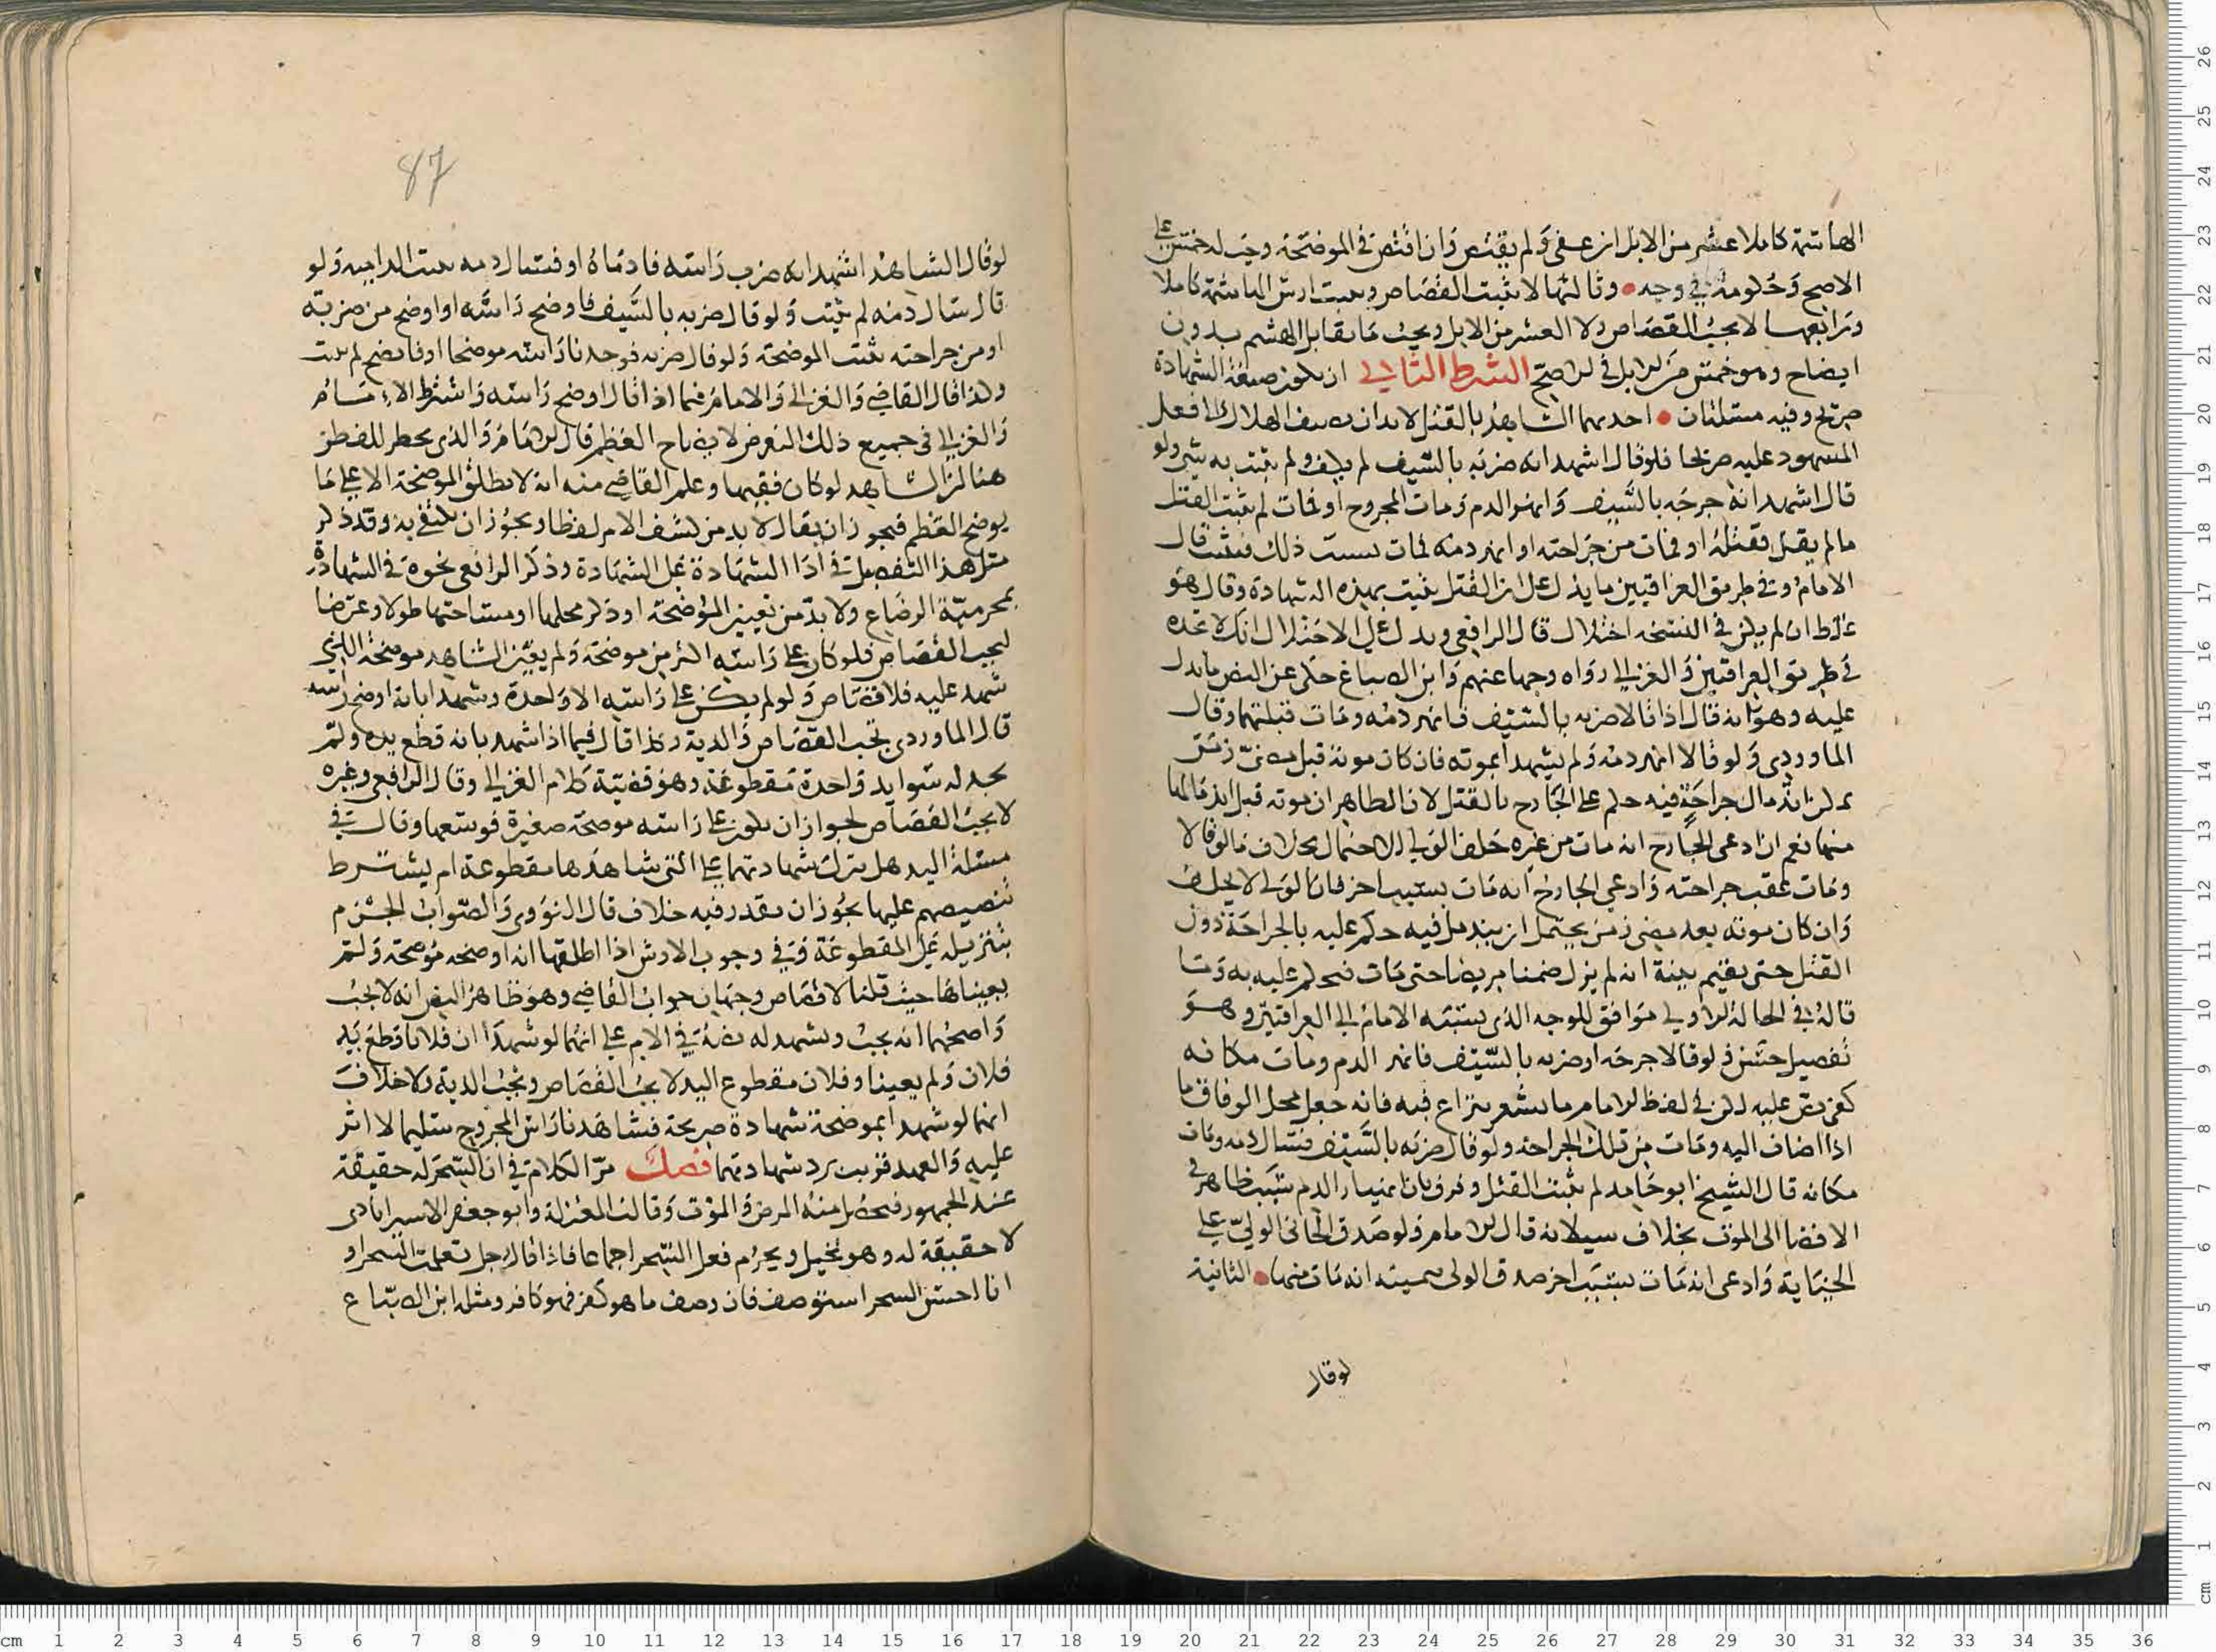 الهاشمة كاملا عشر من الابل ان عفى ولم يقتص وان اقتص في الموضحة وجب له خمس على
الاصح وحكومة في وجه • وثالثها لا يثبت القصاص ويثبت ارش الهاشمة كاملا
ورابعها لا يجب القصاص ولا العشر من الابل ويجب ما يقابل الهشم بدون
ايضاح وهو خمس من الابل في الاصح الشرط الثاني ان يكون صيغة الشهادة
صريح وفيه مسئلتان • احديهما الشاهد بالقتل لابد ان يضيف الهلاك الى فعل
المشهود عليه صريحا فلو قال اشهد انه ضربه بالسيف لم يكف ولم يثبت به شي ولو
قال اشهد انه جرحه بالسيف وانهر الدم ومات المجروح او فمات لم يثبت القتل
ما لم يقل فقتله او فمات من جراحته او انهر دمه فمات بسبب ذلك فيثبت قال
الامام وفي طريق العراقيين ما يدل على ان القتل يثبت بهذه الشهادة وقال هو
غلط ان لم يكن في النسخة اختلال قال الرافعي ويدل على الاختلال انك لا تجده
في طريق العراقيين والغزالي رواه وجها عنهم وابن الصباغ حكى عن النص ما يدل
عليه وهو انه قال اذا قالا ضربه بالسيف فانهر دمه ومات قبلتهما وقال
الماوردي ولو قالا انهر دمه ولم يشهدا بموته فان كان موته قبل مضي زمن
يمكن اندمال جراحة فيه حكم على الجارح بالقتل لان الظاهر ان موته قبل اندمالها
منها نعم ان ادعى الجارح انه مات من غيره حلف الولي للاحتمال بخلاف ما لو قالا
ومات عقب جراحته وادعى الجارح انه مات بسبب اخر فان الولي لا يحلف
وان كان موته بعد مضي زمن يحتمل ان يندمل فيه حكم عليه بالجراحة دون
القتل حتى يقيم بينة انه لم يزل ضمنا مريضا حتى مات فيحكم عليه به وما
قاله في الحالة الاولى موافق للوجه الذي ينسبه الامام الى العراقيين وهو
تفصيل حسن ولو قالا جرحه او ضربه بالسيف فانهر الدم ومات مكانه
كفى نص عليه لكن في لفظ الامام ما يشعر بنزاع فيه فانه جعل محل الوفاق ما
اذا اضاف اليه ومات من تلك الجراحة ولو قال ضربه بالسيف فسال دمه ومات
مكانه قال الشيخ ابو حامد لم يثبت القتل وفرق بان انهيار الدم سبب ظاهر في
الافضا الى الموت بخلاف سيلانه قال الامام ولو صدق الجاني الولي على
الجناية وادعى انه مات بسبب اخر صدق الولي بيمينه انه مات منها • الثانية
لوقال
87
لو قال الشاهد اشهد انه ضرب راسه فادماه او فسال دمه يثبت الدامية ولو
قال سال دمه لم يثبت ولو قال ضربه بالسيف فاوضح راسه او اوضح من ضربته
او من جراحته يثبت الموضحة ولو قال ضربه فوجدنا راسه موضحا او فاتضح لم يثبت
وكذا قال القاضي والغزالي والامام فيما اذا قال اوضح راسه واشترط الامام
والغزالي في جميع ذلك التعرض لايضاح العظم قال الامام والذي يخطر للفطن
هنا ان الشاهد لو كان فقيها وعلم القاضي منه انه لا يطلق الموضحة الا على ما
يوضح العظم فيجوز ان يقال لا بد من كشف الامر لفظا ويجوز ان يكتفى به وقد ذكر
مثل هذا التفصيل في اداا الشهادة على الشهادة وذكر الرافعي نحوه في الشهادة
بمحرمية الرضاع ولا بد من تعيين الموضحة او ذكر محلها او مساحتها طولا وعرضا
ليجب القصاص فلو كان على راسه اكثر من موضحة ولم يعين الشاهد موضحة التي
شهد عليه فلا قصاص ولو لم يكن على راسه الا واحدة وشهدا بانه اوضح راسه
قال الماوردي تجب القصاص والدية وكذا قال فيما اذا شهد بانه قطع يده ولم
يجد له سوا يد واحدة مقطوعة وهو قضية كلام الغزالي وقال الرافعي وغيره
لا يجب القصاص لجواز ان يكون على راسه موضحة صغيرة فوسعها وقال في
مسئلة اليد هل ينزل شهادتهما على التي شاهدها مقطوعة ام يشترط
تنصيصهم عليها يجوز ان يقدر فيه خلاف قال النووي والصواب الجزم
بتنزيله على المقطوعة وفي وجوب الارش اذا اطلقها انه اوضحه موضحة ولم
يعيناها حيث قلنا لا قصاص وجهان جواب القاضي وهو ظاهر النص انه لا يجب
واصحهما انه يجب ويشهد له نصه في الام على انهما لو شهدا ان فلانا قطع يد
فلان ولم يعينا وفلان مقطوع اليد لا يجب القصاص وتجب الدية ولا خلاف
انهما لو شهدا بموضحة شهادة صريحة فشاهدنا راس المجروح سليما لا اثر
عليه والعهد قريب يرد شهادتهما فصل مر الكلام في ان السحر له حقيقة
عند الجمهور فيحصل منه المرض والموت وقالت المعتزلة وابو جعفر الاستراباذي
لا حقيقة له وهو تخييل ويحرم فعل السحر اجماعا فاذا قال رجل تعلمت السحر او
انا احسن السحر استوصف فان وصف ما هو كفر فهو كافر ومثله ابن الصباغ